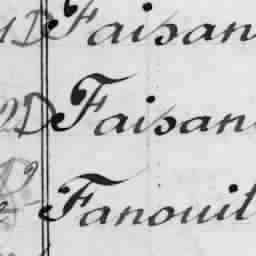 1D Faisan
2D Faisan
Fanouil